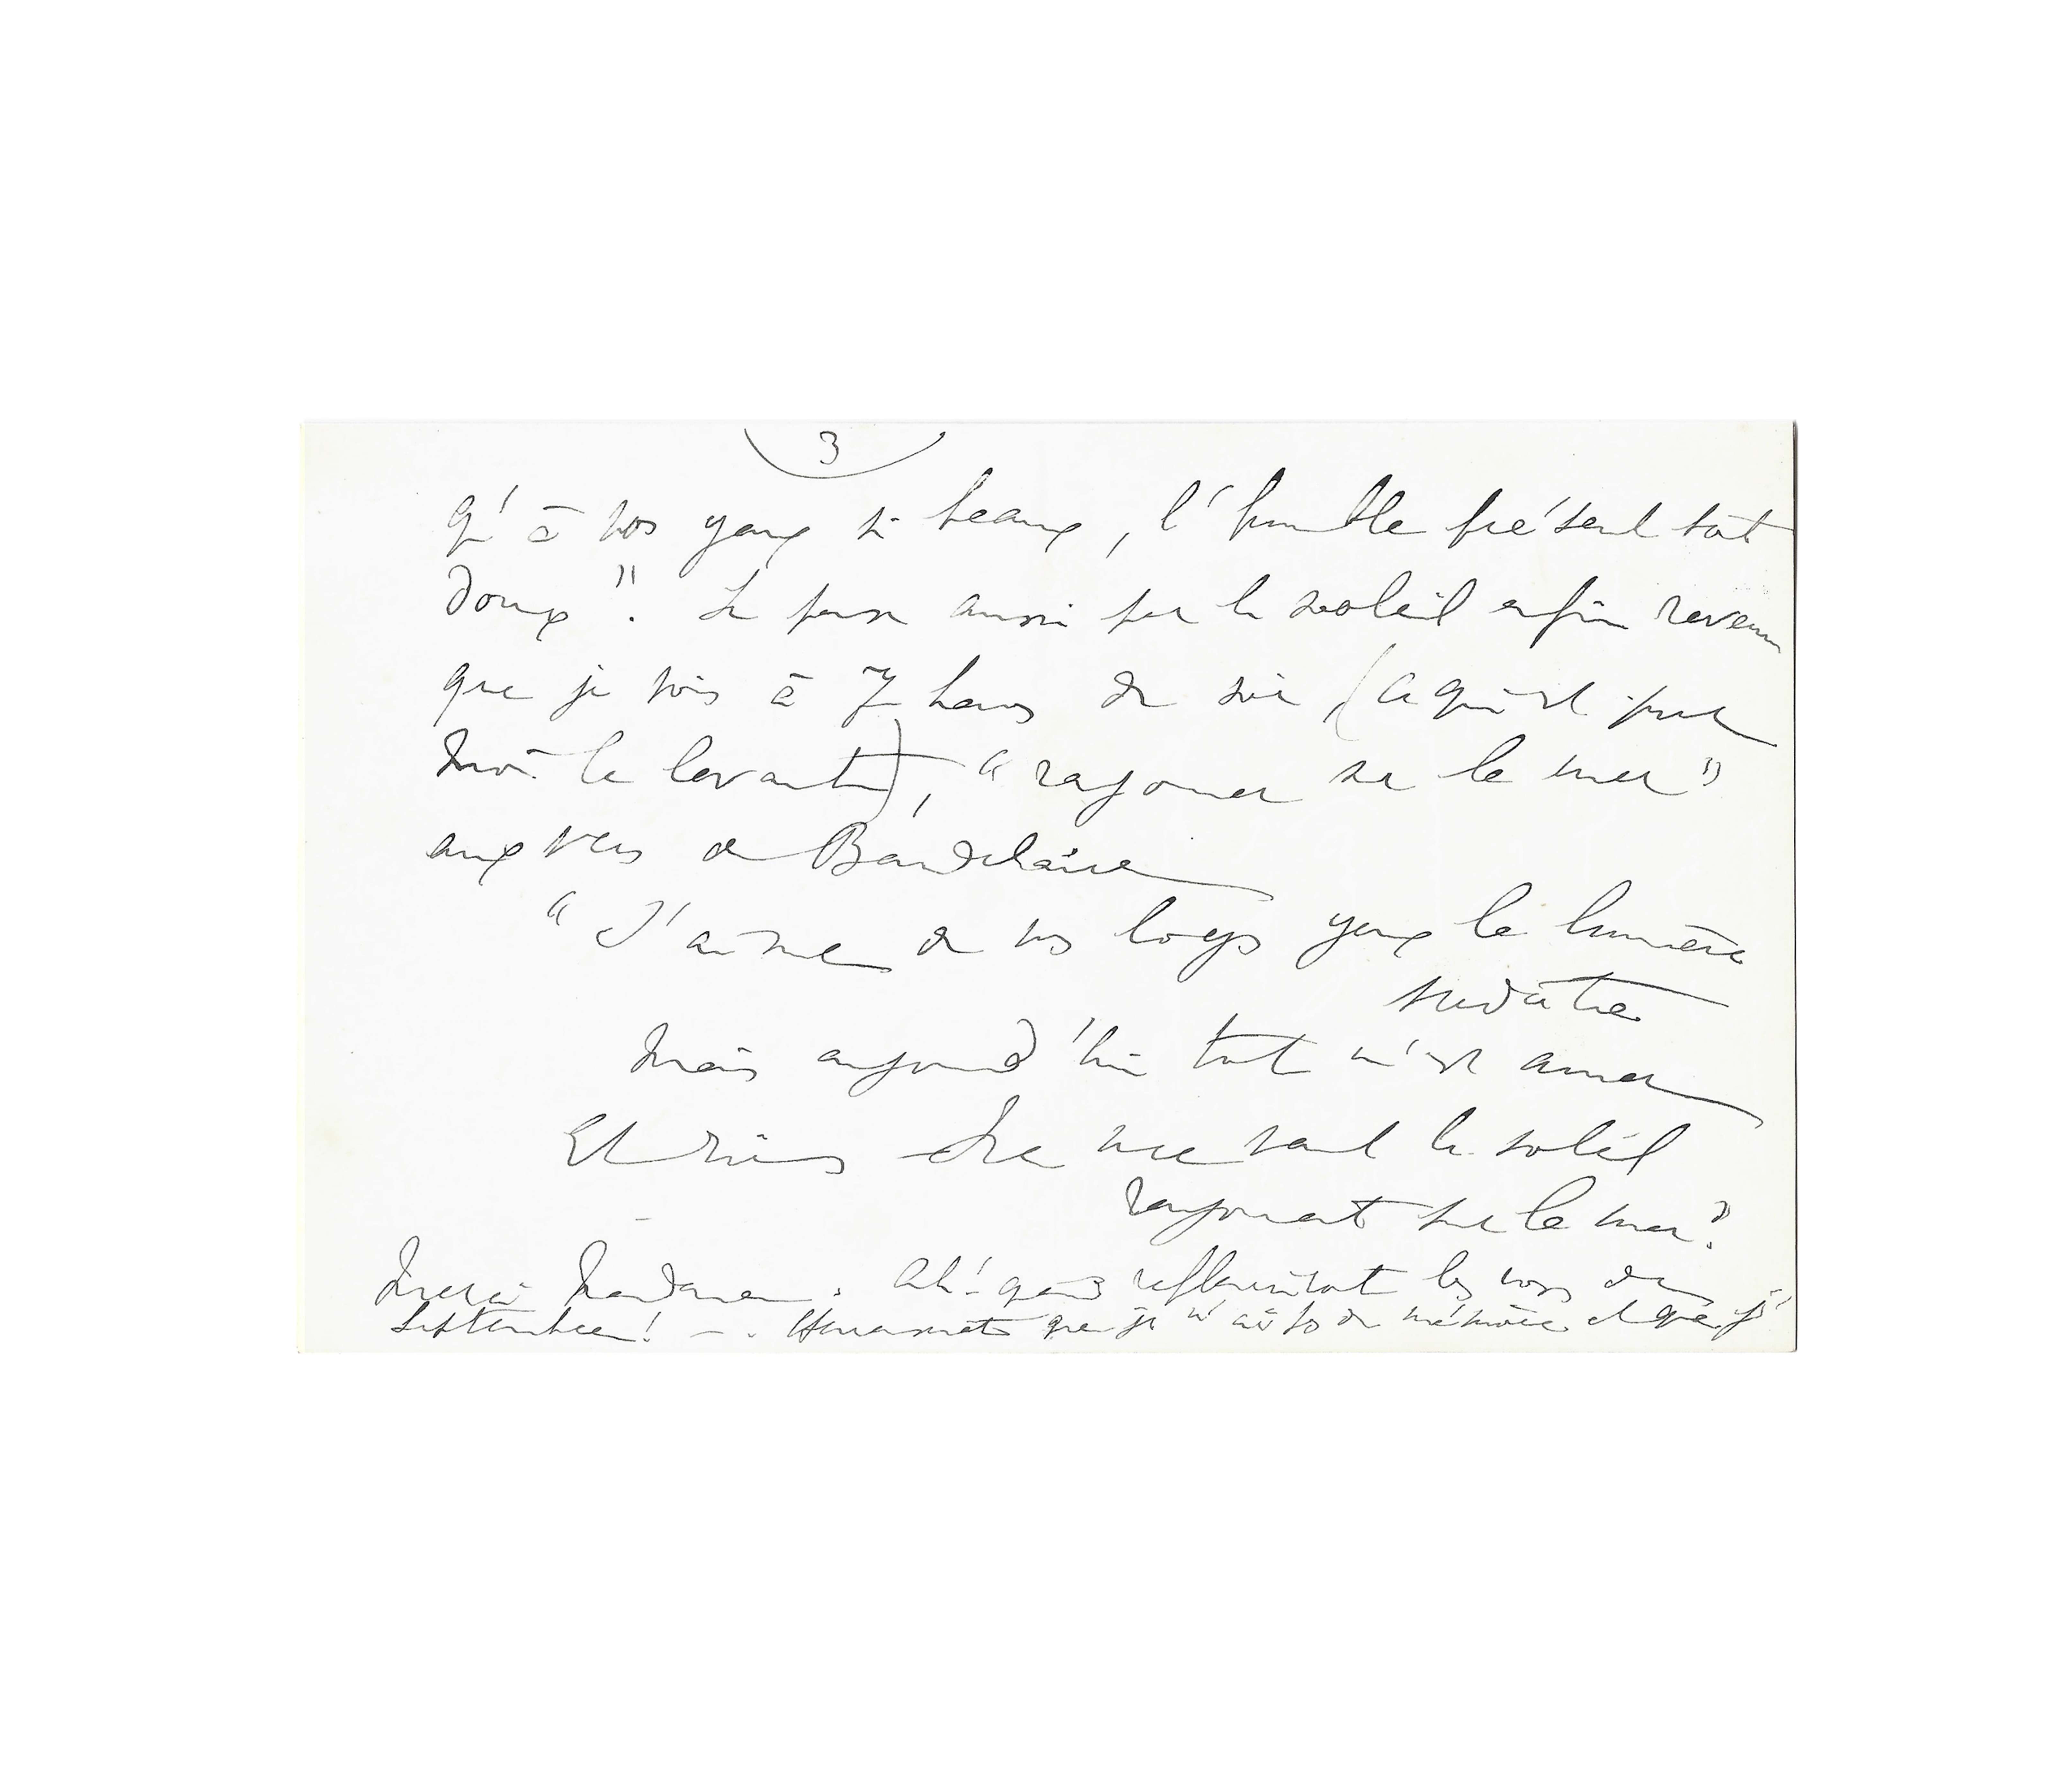 3
qu'à vos yeux si beaux, l'humble présent soit
doux". Je pense aussi par le soleil enfin revenu
que je vois à 7 heures du soir (ce qui est pour
moi le levant), "rayonner sur la mer"
aux vers de Baudelaire
"J'aime de vos longs yeux la lumière
verdâtre
Mais aujourd'hui tout m'est amer
Et rien ne me vaut le soleil
rayonnant sur la mer".
Merci Madame. Ah! quand refleuriront les roses de
Septembre! — . Heureusement que je n'ai pas de mémoire et que j'